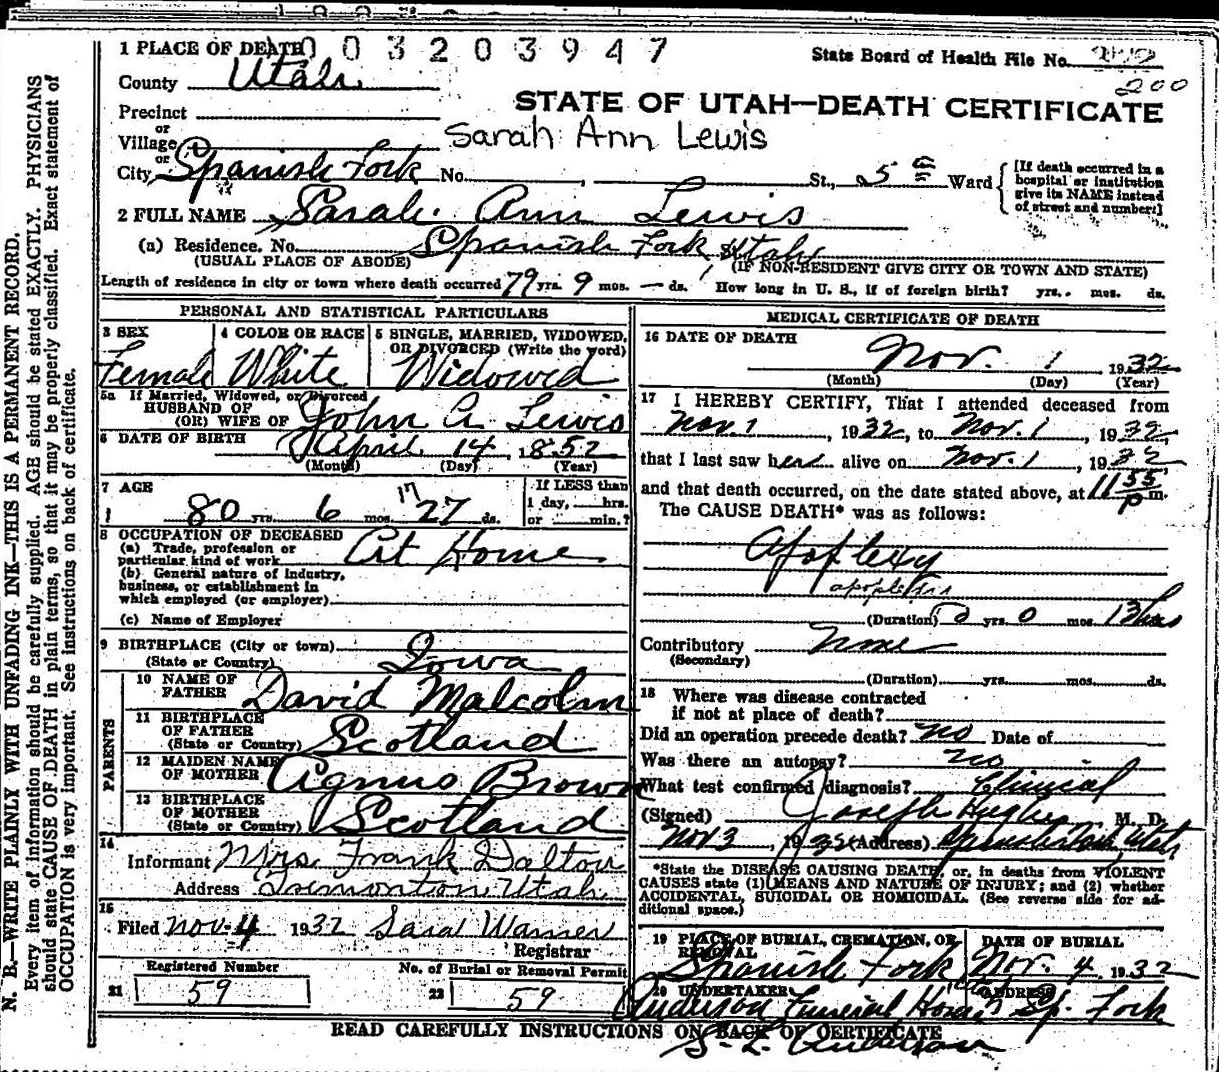 1 PLACE OF DEATH 1003203947
State Board of Health File No. 200
County Utah
STATE OF UTAH—DEATH CERTIFICATE
Precinct
or
Village
Sarah Ann Lewis
or
City Spanish Fork No. , St., 5th Ward
[If death occurred in a hospital or institution give its NAME instead of street and number.]
2 FULL NAME Sarah Ann Lewis
(a) Residence. No. Spanish Fork, Utah
(USUAL PLACE OF ABODE) (IF NON-RESIDENT GIVE CITY OR TOWN AND STATE)
Length of residence in city or town where death occurred 79 yrs. 9 mos. — ds. How long in U. S., if of foreign birth? yrs. mos. ds.
PERSONAL AND STATISTICAL PARTICULARS
3 SEX
Female
4 COLOR OR RACE
White
5 SINGLE, MARRIED, WIDOWED,
OR DIVORCED (Write the word)
Widowed
5a If Married, Widowed, or Divorced
HUSBAND OF
(OR) WIFE OF John A. Lewis
6 DATE OF BIRTH April 14, 1852
(Month) (Day) (Year)
7 AGE
If LESS than
1 day, hrs.
or min.?
17
80 yrs. 6 mos. 27 ds.
8 OCCUPATION OF DECEASED
(a) Trade, profession or
particular kind of work At Home
(b) General nature of industry,
business, or establishment in
which employed (or employer)
(c) Name of Employer
9 BIRTHPLACE (City or town)
(State or Country) Iowa
PARENTS
10 NAME OF
FATHER David Malcolm
11 BIRTHPLACE
OF FATHER
(State or Country) Scotland
12 MAIDEN NAME
OF MOTHER Agnus Brown
13 BIRTHPLACE
OF MOTHER
(State or Country) Scotland
14
Informant Mrs. Frank Dalton
Address Tremonton, Utah
15
Filed Nov. 4 1932 Sara Warner
Registrar
Registered Number
21 59
No. of Burial or Removal Permit
22 59
MEDICAL CERTIFICATE OF DEATH
16 DATE OF DEATH
Nov. 1 1932
(Month) (Day) (Year)
17 I HEREBY CERTIFY, That I attended deceased from
Nov. 1, 1932, to Nov. 1, 1932,
that I last saw her alive on Nov. 1, 1932
and that death occurred, on the date stated above, at 11 55 p m.
The CAUSE DEATH* was as follows:
Apoplexy
(Duration) 0 yrs. 0 mos. 13 hrs
Contributory None
(Secondary)
(Duration) yrs. mos. ds.
18 Where was disease contracted
if not at place of death?
Did an operation precede death? No Date of
Was there an autopsy? No
What test confirmed diagnosis? Clinical
(Signed) Joseph Hughes M. D.
Nov 3, 1932 (Address) Spanish Fork, Utah
*State the DISEASE CAUSING DEATH, or, in deaths from VIOLENT
CAUSES state (1) MEANS AND NATURE OF INJURY; and (2) whether
ACCIDENTAL, SUICIDAL OR HOMICIDAL. (See reverse side for ad-
ditional space.)
19 PLACE OF BURIAL, CREMATION, OR
REMOVAL
Spanish Fork
DATE OF BURIAL
Nov. 4 1932
20 UNDERTAKER
Anderson Funeral Home
ADDRESS
Sp. Fork
READ CAREFULLY INSTRUCTIONS ON BACK OF CERTIFICATE
S. L. Anderson
N. B.—WRITE PLAINLY WITH UNFADING INK—THIS IS A PERMANENT RECORD.
Every item of information should be carefully supplied. AGE should be stated EXACTLY. PHYSICIANS
should state CAUSE OF DEATH in plain terms, so that it may be properly classified. Exact statement of
OCCUPATION is very important. See instructions on back of certificate.